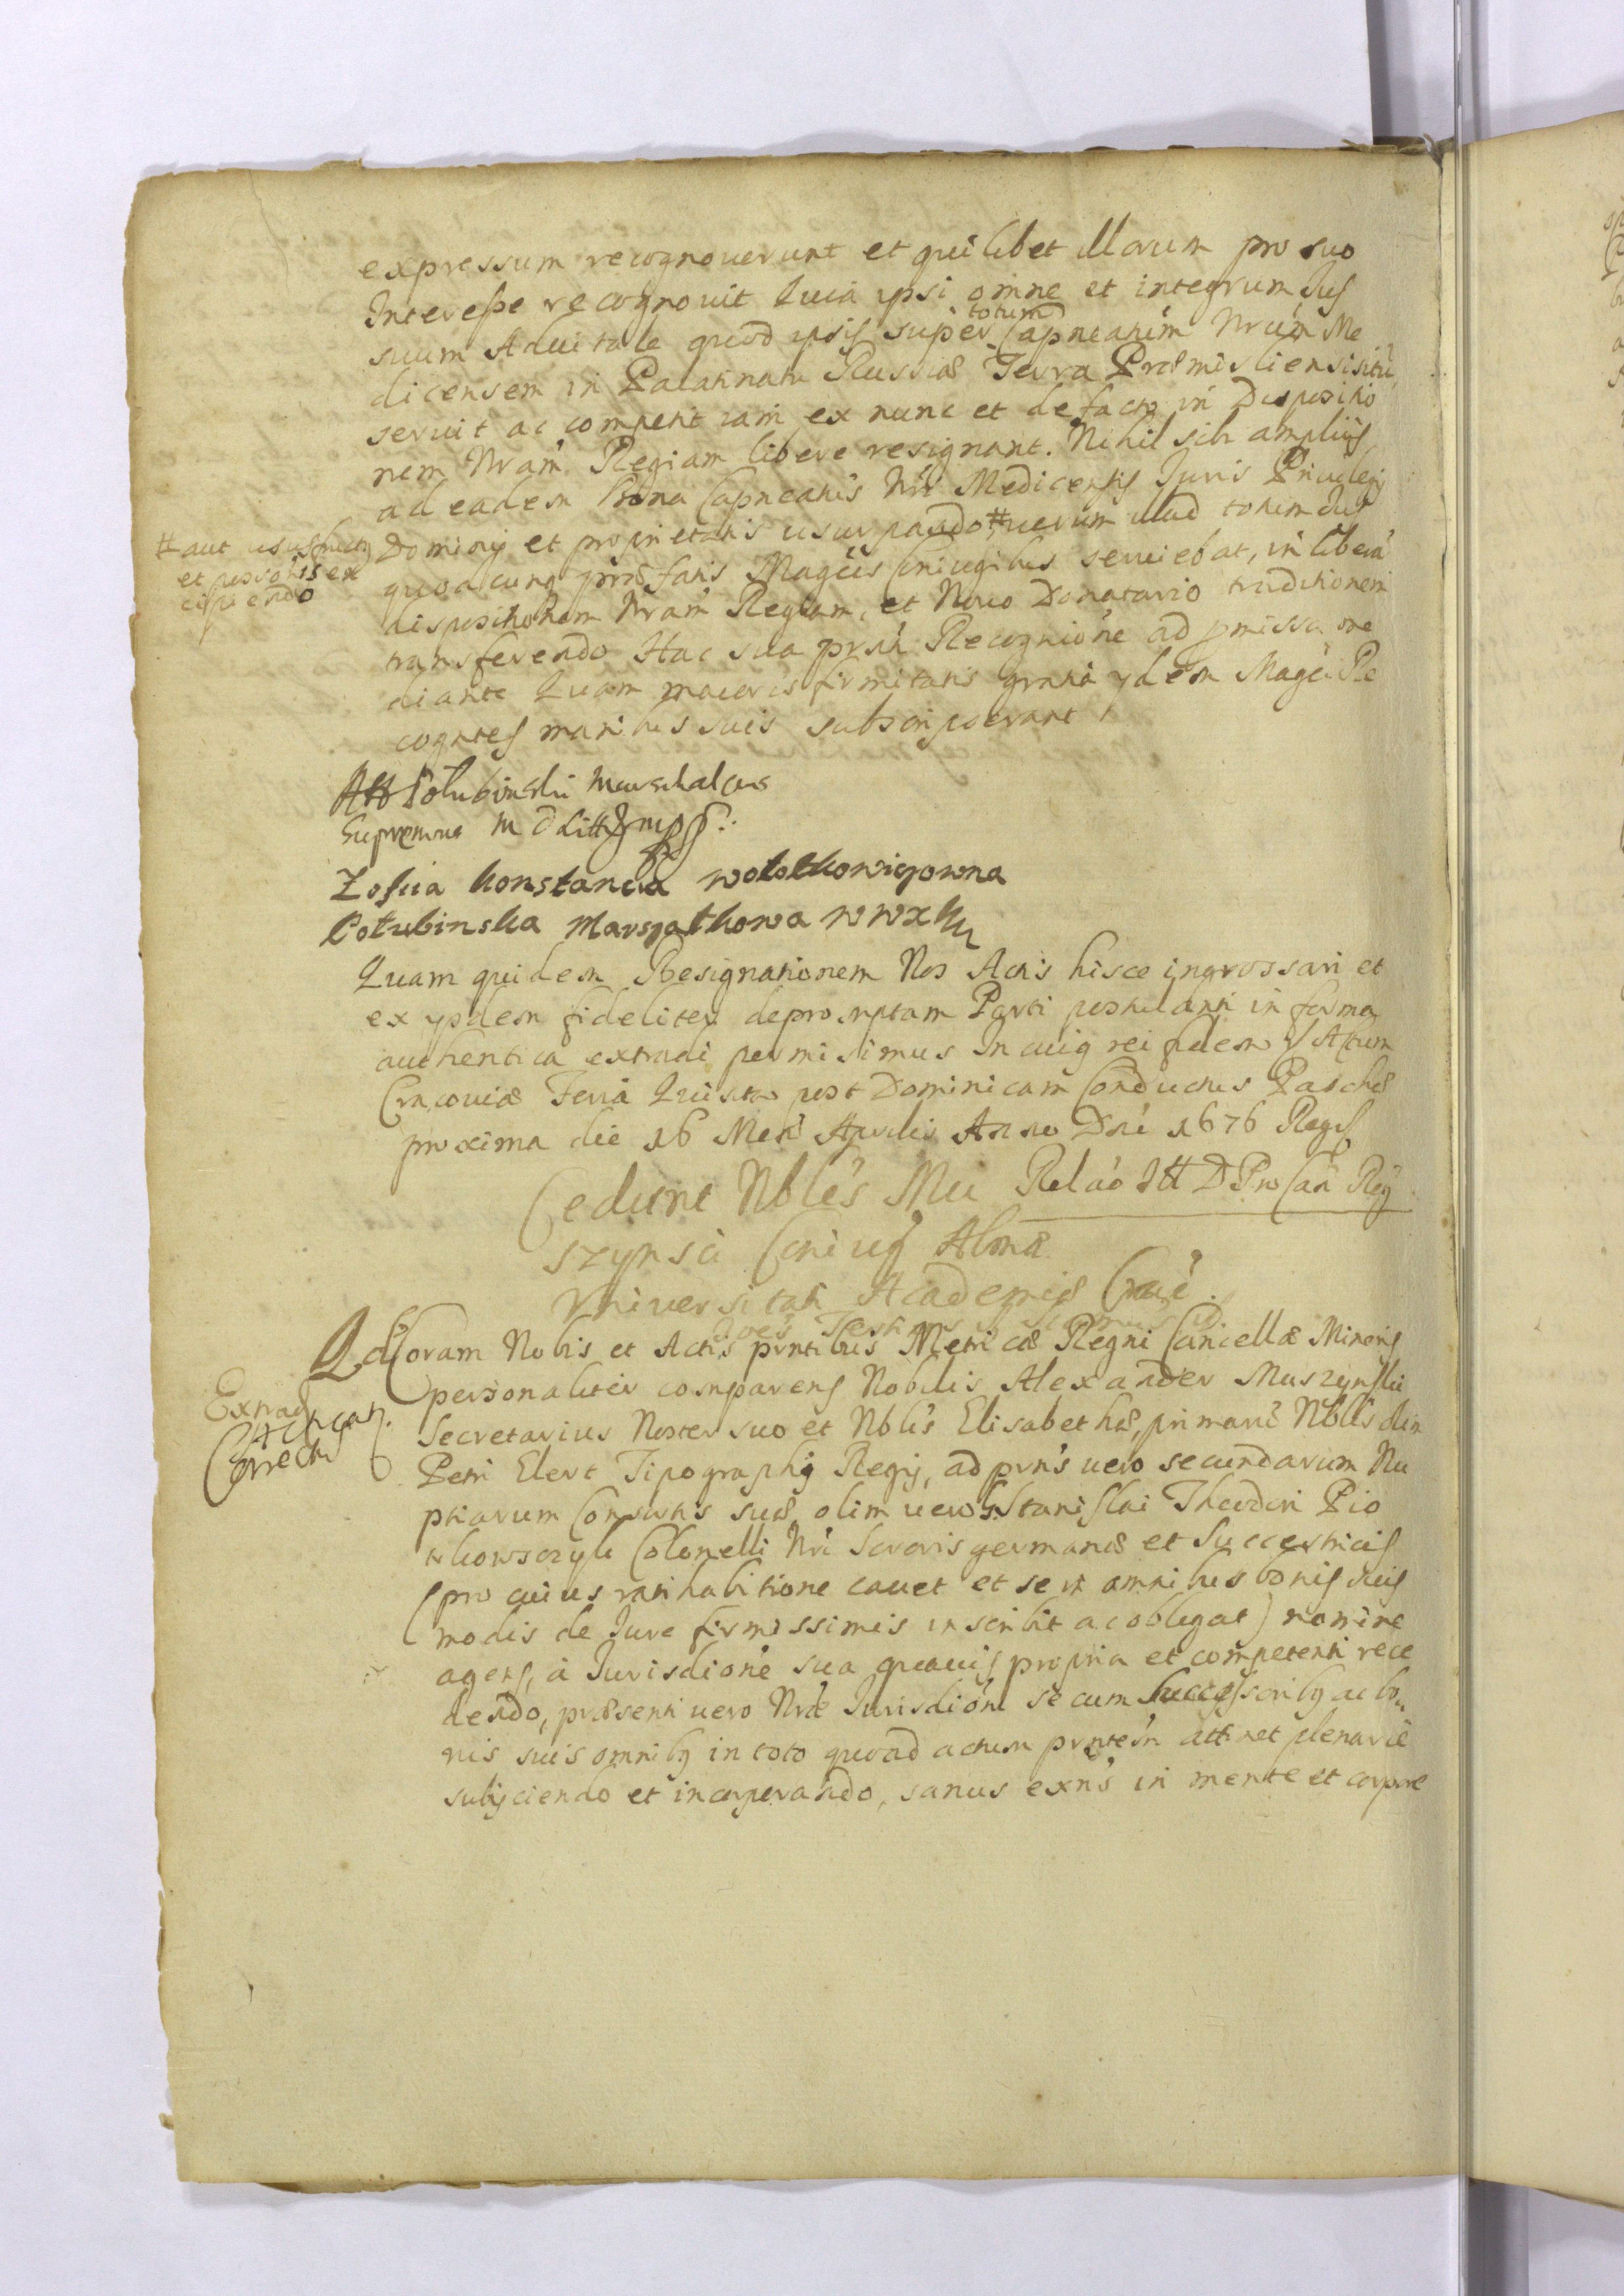 expressum recognoverunt et quilibet illorum pro suo
Interesse recognovit Quia ipsi omne et integrum Jus
suum Advitale quod ipsis super totum Capneatum Nrum Me
dicensem in Palatinatu Russiæ Terra Præmisliensi situ
servit ac competit iam ex nunc et de facto in Dispositio
nem Nram Regiam libere resignant. Nihil sibi amplius
ad eadem Bona Capneatus Nri Medicensis Juris Privilegij
# aut ususfructus
et possonis ex
cipiendo
Dominij et proprietatis usurpando, # verum illud totum Jus
quodcunq præfatis Magcis Coniugibus serviebat, in liberā
dispositionem Nram Regiam, et Novo Donatario traditionem
transferendo Hac sua prnti Recognione ad pmissa me
diante Quam maioris firmitatis gratia ydem Magci Re
cogntes manibus suis subscripserunt
AH Połubinski Marschalcus
Supremus M D Litt mpp.
Zofiia Konstancia wołołkowiczowna
Połubinska Marszałkowa WWXL
Quam quidem Resignationem Nos Actis hisce ingrossari et
ex ysdem fideliter depromptam Parti postulanti in forma
authentica extradi permisimus In cuig rei fidem Actum
Cracoviæ Feria Quinta post Dominicam Conductus Paschæ
proxima die 16 Mens Aprilis Anno Dni 1676 Regs
Relao Ill D Pro Can Reg
Cedunt Nbles Mu
szynscii Coniug Almæ
Universitati Academiæ Crac.
Extrad
Correcta
Qd Coram Nobis et Actis prntibus Metricæ Regni Cancellæ Minoris
personaliter comparens Nobilis Alexander Muszynskii
Secretarius Noster suo et Nblis Elisabethæ, primarū Nblis olim
Petri Elert Tipographi Regij, ad prns vero secundarum Nu
ptiarum Consortis suæ olim vero Stanislai Theodori Pio
trkowszyk Colonelli Nri Sororis germanæ et Successricis
(pro cuius ratihabitione cavet et se in omnibus bonis suis
modis de Jure firmissimis inscribit ac obligat) nomine
agens, à Jurisdione sua quavis propria et competenti rece
dendo, præsenti vero Nræ Jurisdioni se cum Successoribq ac bo
nis suis omnibq in toto quoad actum prntem attinet plenarie
subijciendo et incorporando, sanus exns in mente et corpore